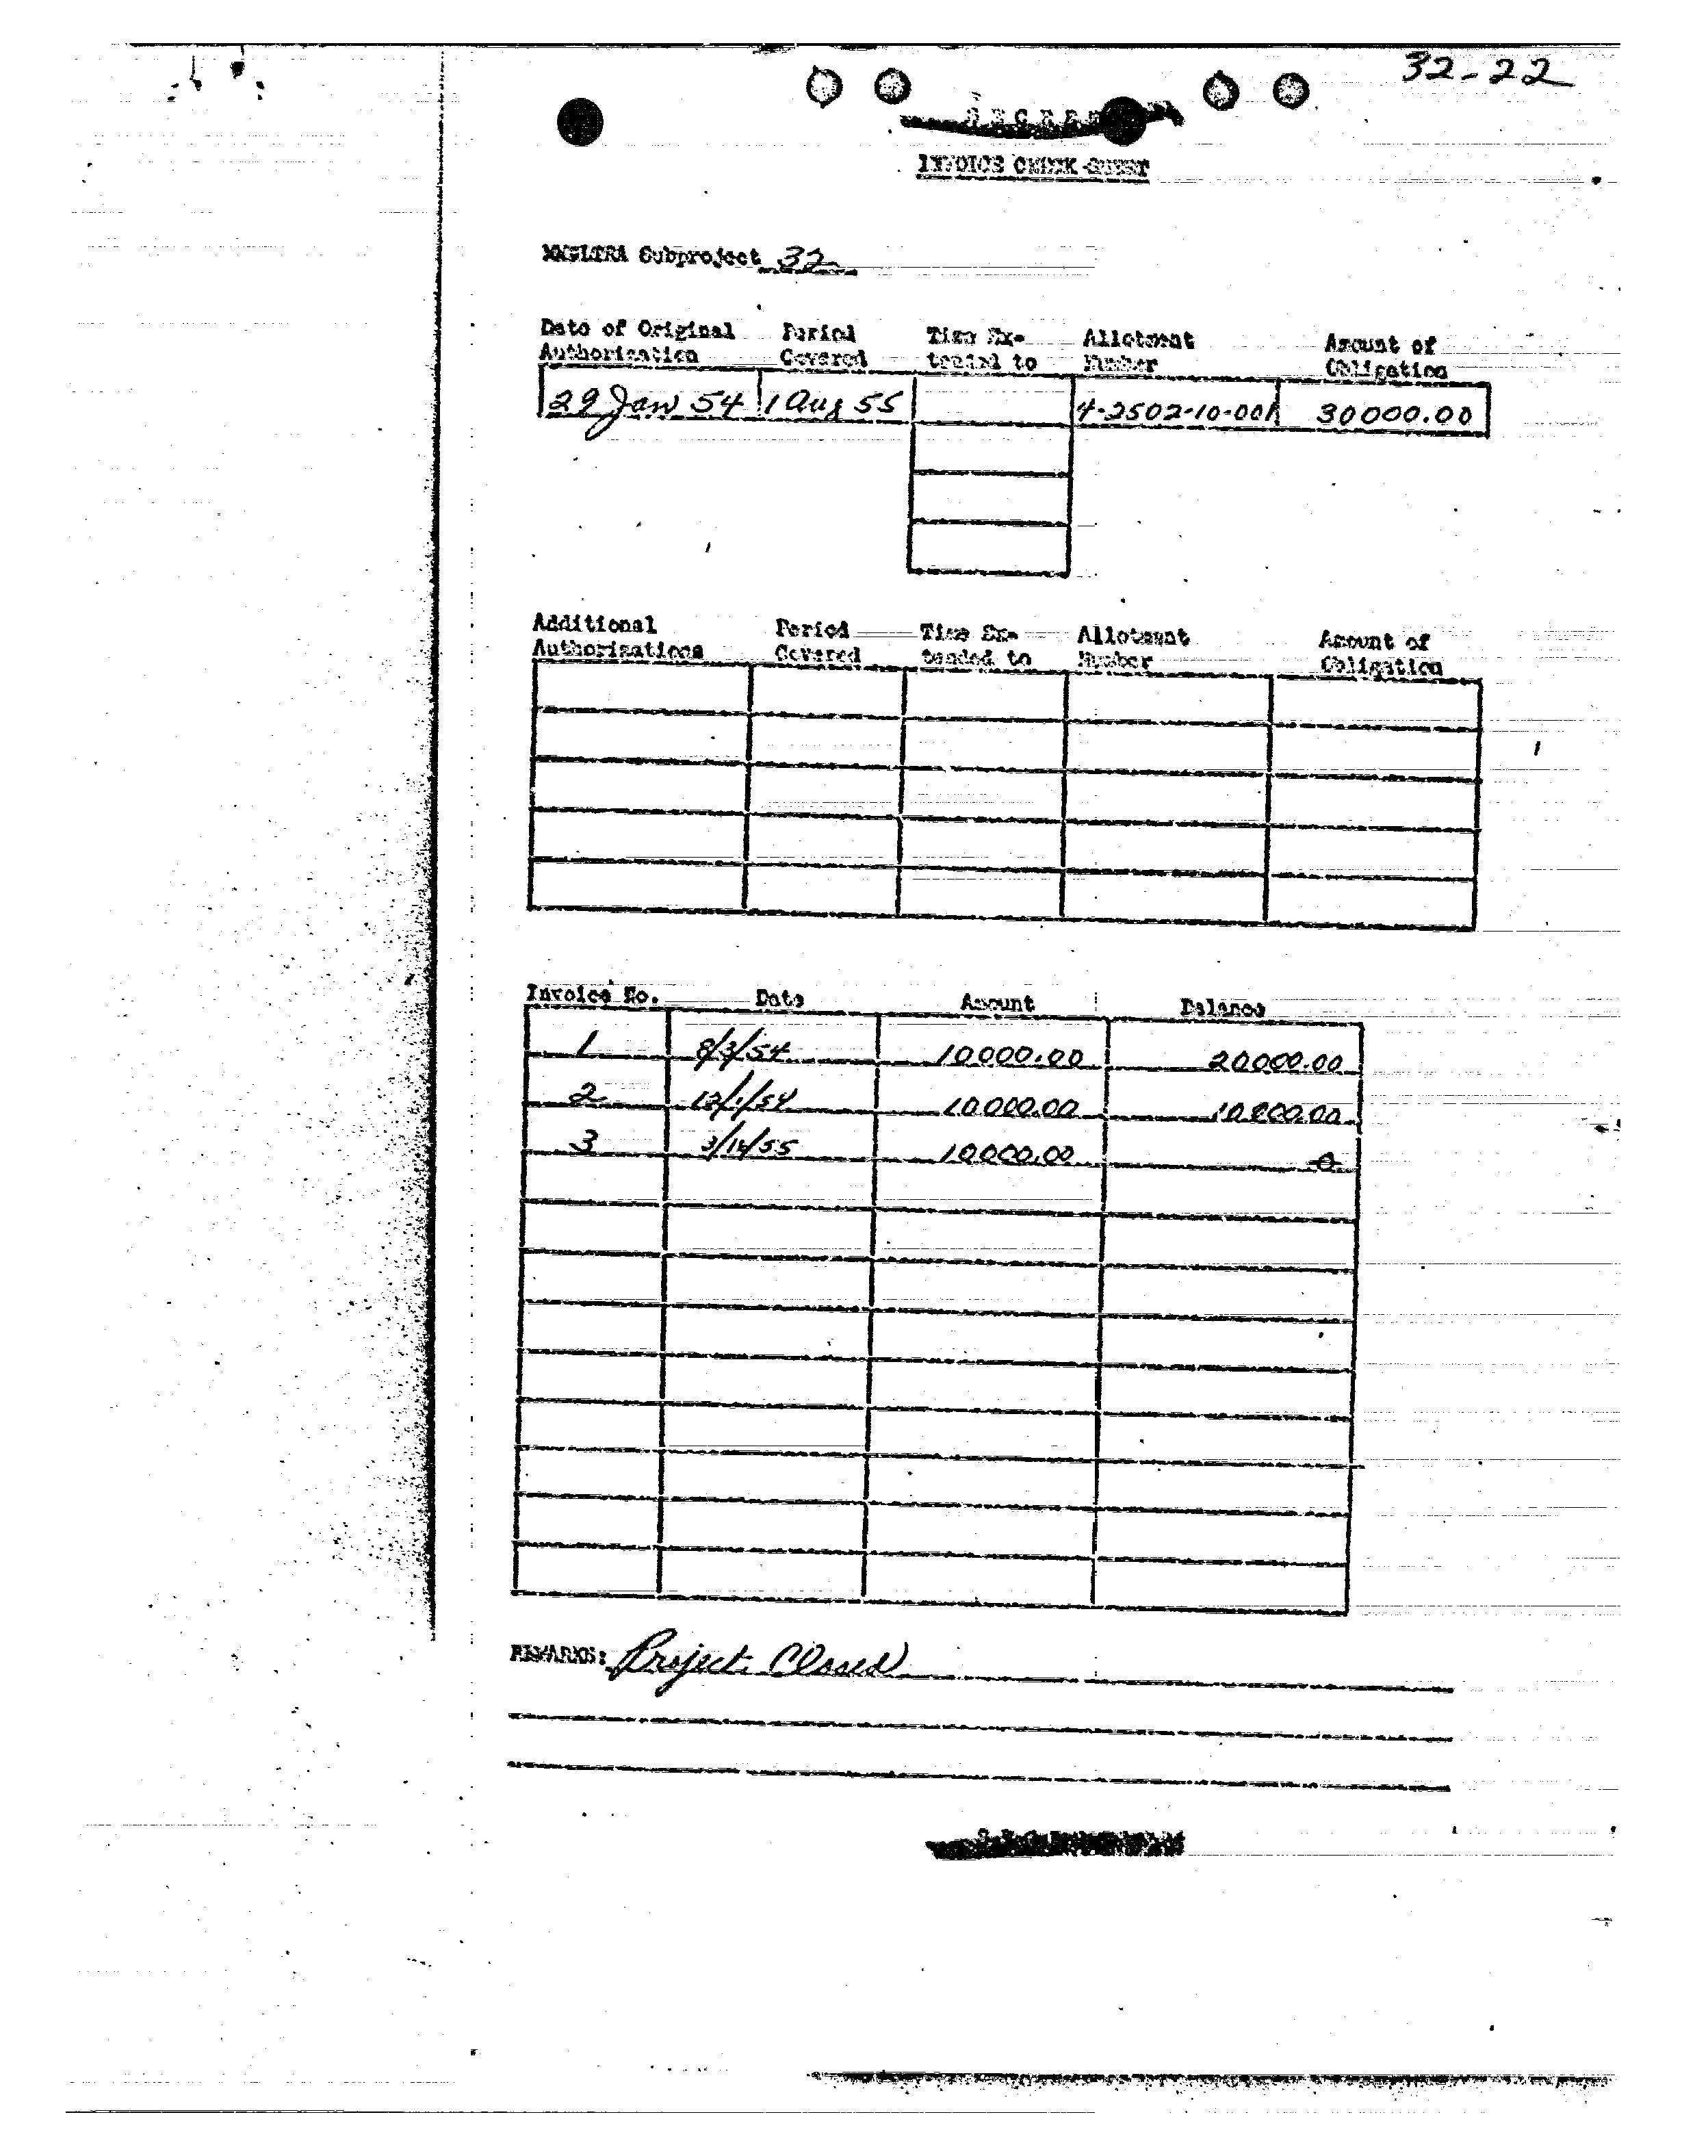 32-22
SECRET
INVOICE CHECK-SHEET
MKULTRA Subproject 32
Date of Original Authorization Period Covered Time Extended to Allotment Number Amount of Obligation
29 Jan 54 1 Aug 55 4-2502-10-001 30000.00
Additional Authorizations Period Covered Time Extended to Allotment Number Amount of Obligation
Invoice No. Date Amount Balance
1 8/3/54 10000.00 20000.00
2 12/1/54 10000.00 10000.00
3 10000.00 0
REMARKS: Project Closed